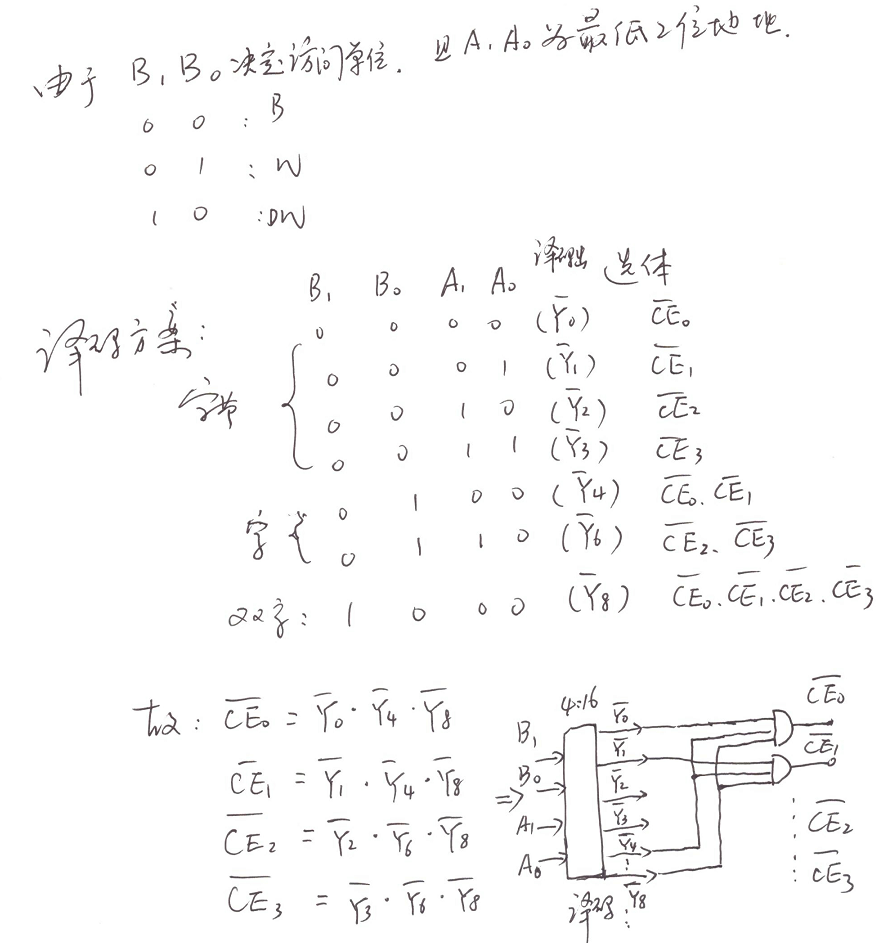 由于 B₁ B₀ 决定访问单位. 且 A₁ A₀ 为最低2位地址.
0 0 : B
0 1 : W
1 0 : DW
B₁ B₀ A₁ A₀ 译码出 选体
译码方案:
0 0 0 0 (Y̅₀) C̅E̅₀
字节 0 0 0 1 (Y̅₁) C̅E̅₁
0 0 1 0 (Y̅₂) C̅E̅₂
0 0 1 1 (Y̅₃) C̅E̅₃
字 0 1 0 0 (Y̅₄) C̅E̅₀. C̅E̅₁
0 1 1 0 (Y̅₆) C̅E̅₂、C̅E̅₃
双字: 1 0 0 0 (Y̅₈) C̅E̅₀. C̅E̅₁. C̅E̅₂. C̅E̅₃
故: C̅E̅₀ = Y̅₀ · Y̅₄ · Y̅₈
C̅E̅₁ = Y̅₁ · Y̅₄ · Y̅₈
C̅E̅₂ = Y̅₂ · Y̅₆ · Y̅₈
C̅E̅₃ = Y̅₃ · Y̅₆ · Y̅₈
⇒
4:16
B₁
B₀
A₁
A₀
Y̅₀
Y̅₁
Y̅₂
Y̅₃
Y̅₄
⋮
Y̅₈
⋮
译码
C̅E̅₀
C̅E̅₁
⋮ C̅E̅₂
⋮ C̅E̅₃